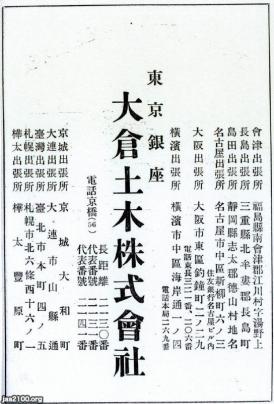 會津出張所 福島縣南會津郡江川村字湯野上
長島出張所 三重縣北牟婁郡長島町
島田出張所 靜岡縣志太郡德山村地名
名古屋出張所 名古屋市中區新柳町六ノ三
住友銀行名古屋ビル內
大阪出張所 大阪市東區釣鐘町二ノ二九
電話東長三二一番、二〇六番
橫濱出張所 橫濱市中區海岸通一ノ四
電話本局二六九番
東京銀座
大倉土木株式會社
電話京橋(56)
長距離 二一三〇
代表番號 二一三〇
代表番號 二二四一
京城出張所 京城大和町
大連出張所 大連市山縣通
臺灣出張所 臺北市本町四ノ五
札幌出張所 札幌市北六條西十六ノ一
樺太出張所 樺太豐原町
jaa2100.org